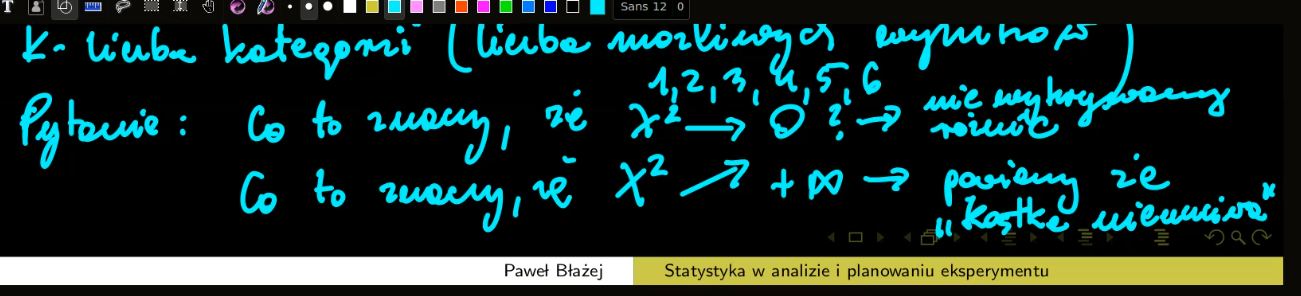 Sans 12 0
K- liczba kategorii (liczba możliwych wyników)
1, 2, 3, 4, 5, 6
Pytanie: Co to znaczy, że χ² → 0 ? → nie wykrywamy różnic
Co to znaczy, że χ² ↗ +∞ → powiemy że „Kostka nieuczciwa"
Paweł Błażej Statystyka w analizie i planowaniu eksperymentu